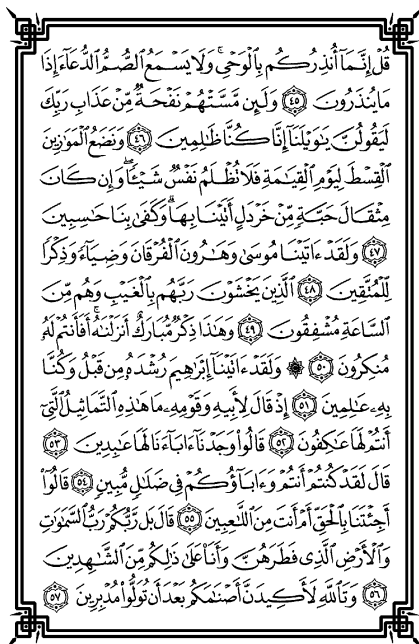 قُلْ إِنَّمَآ أُنذِرُكُم بِٱلْوَحْىِ ۚ وَلَا يَسْمَعُ ٱلصُّمُّ ٱلدُّعَآءَ إِذَا
مَا يُنذَرُونَ ٤٥ وَلَئِن مَّسَّتْهُمْ نَفْحَةٌ مِّنْ عَذَابِ رَبِّكَ
لَيَقُولُنَّ يَٰوَيْلَنَآ إِنَّا كُنَّا ظَٰلِمِينَ ٤٦ وَنَضَعُ ٱلْمَوَٰزِينَ
ٱلْقِسْطَ لِيَوْمِ ٱلْقِيَٰمَةِ فَلَا تُظْلَمُ نَفْسٌ شَيْـًٔا ۖ وَإِن كَانَ
مِثْقَالَ حَبَّةٍ مِّنْ خَرْدَلٍ أَتَيْنَا بِهَا ۗ وَكَفَىٰ بِنَا حَٰسِبِينَ
٤٧ وَلَقَدْ ءَاتَيْنَا مُوسَىٰ وَهَٰرُونَ ٱلْفُرْقَانَ وَضِيَآءً وَذِكْرًا
لِّلْمُتَّقِينَ ٤٨ ٱلَّذِينَ يَخْشَوْنَ رَبَّهُم بِٱلْغَيْبِ وَهُم مِّنَ
ٱلسَّاعَةِ مُشْفِقُونَ ٤٩ وَهَٰذَا ذِكْرٌ مُّبَارَكٌ أَنزَلْنَٰهُ ۚ أَفَأَنتُمْ لَهُۥ
مُنكِرُونَ ٥٠ ۞ وَلَقَدْ ءَاتَيْنَآ إِبْرَٰهِيمَ رُشْدَهُۥ مِن قَبْلُ وَكُنَّا
بِهِۦ عَٰلِمِينَ ٥١ إِذْ قَالَ لِأَبِيهِ وَقَوْمِهِۦ مَا هَٰذِهِ ٱلتَّمَاثِيلُ ٱلَّتِىٓ
أَنتُمْ لَهَا عَٰكِفُونَ ٥٢ قَالُوا۟ وَجَدْنَآ ءَابَآءَنَا لَهَا عَٰبِدِينَ ٥٣
قَالَ لَقَدْ كُنتُمْ أَنتُمْ وَءَابَآؤُكُمْ فِى ضَلَٰلٍ مُّبِينٍ ٥٤ قَالُوٓا۟
أَجِئْتَنَا بِٱلْحَقِّ أَمْ أَنتَ مِنَ ٱللَّٰعِبِينَ ٥٥ قَالَ بَل رَّبُّكُمْ رَبُّ ٱلسَّمَٰوَٰتِ
وَٱلْأَرْضِ ٱلَّذِى فَطَرَهُنَّ وَأَنَا۠ عَلَىٰ ذَٰلِكُم مِّنَ ٱلشَّٰهِدِينَ
٥٦ وَتَٱللَّهِ لَأَكِيدَنَّ أَصْنَٰمَكُم بَعْدَ أَن تُوَلُّوا۟ مُدْبِرِينَ ٥٧